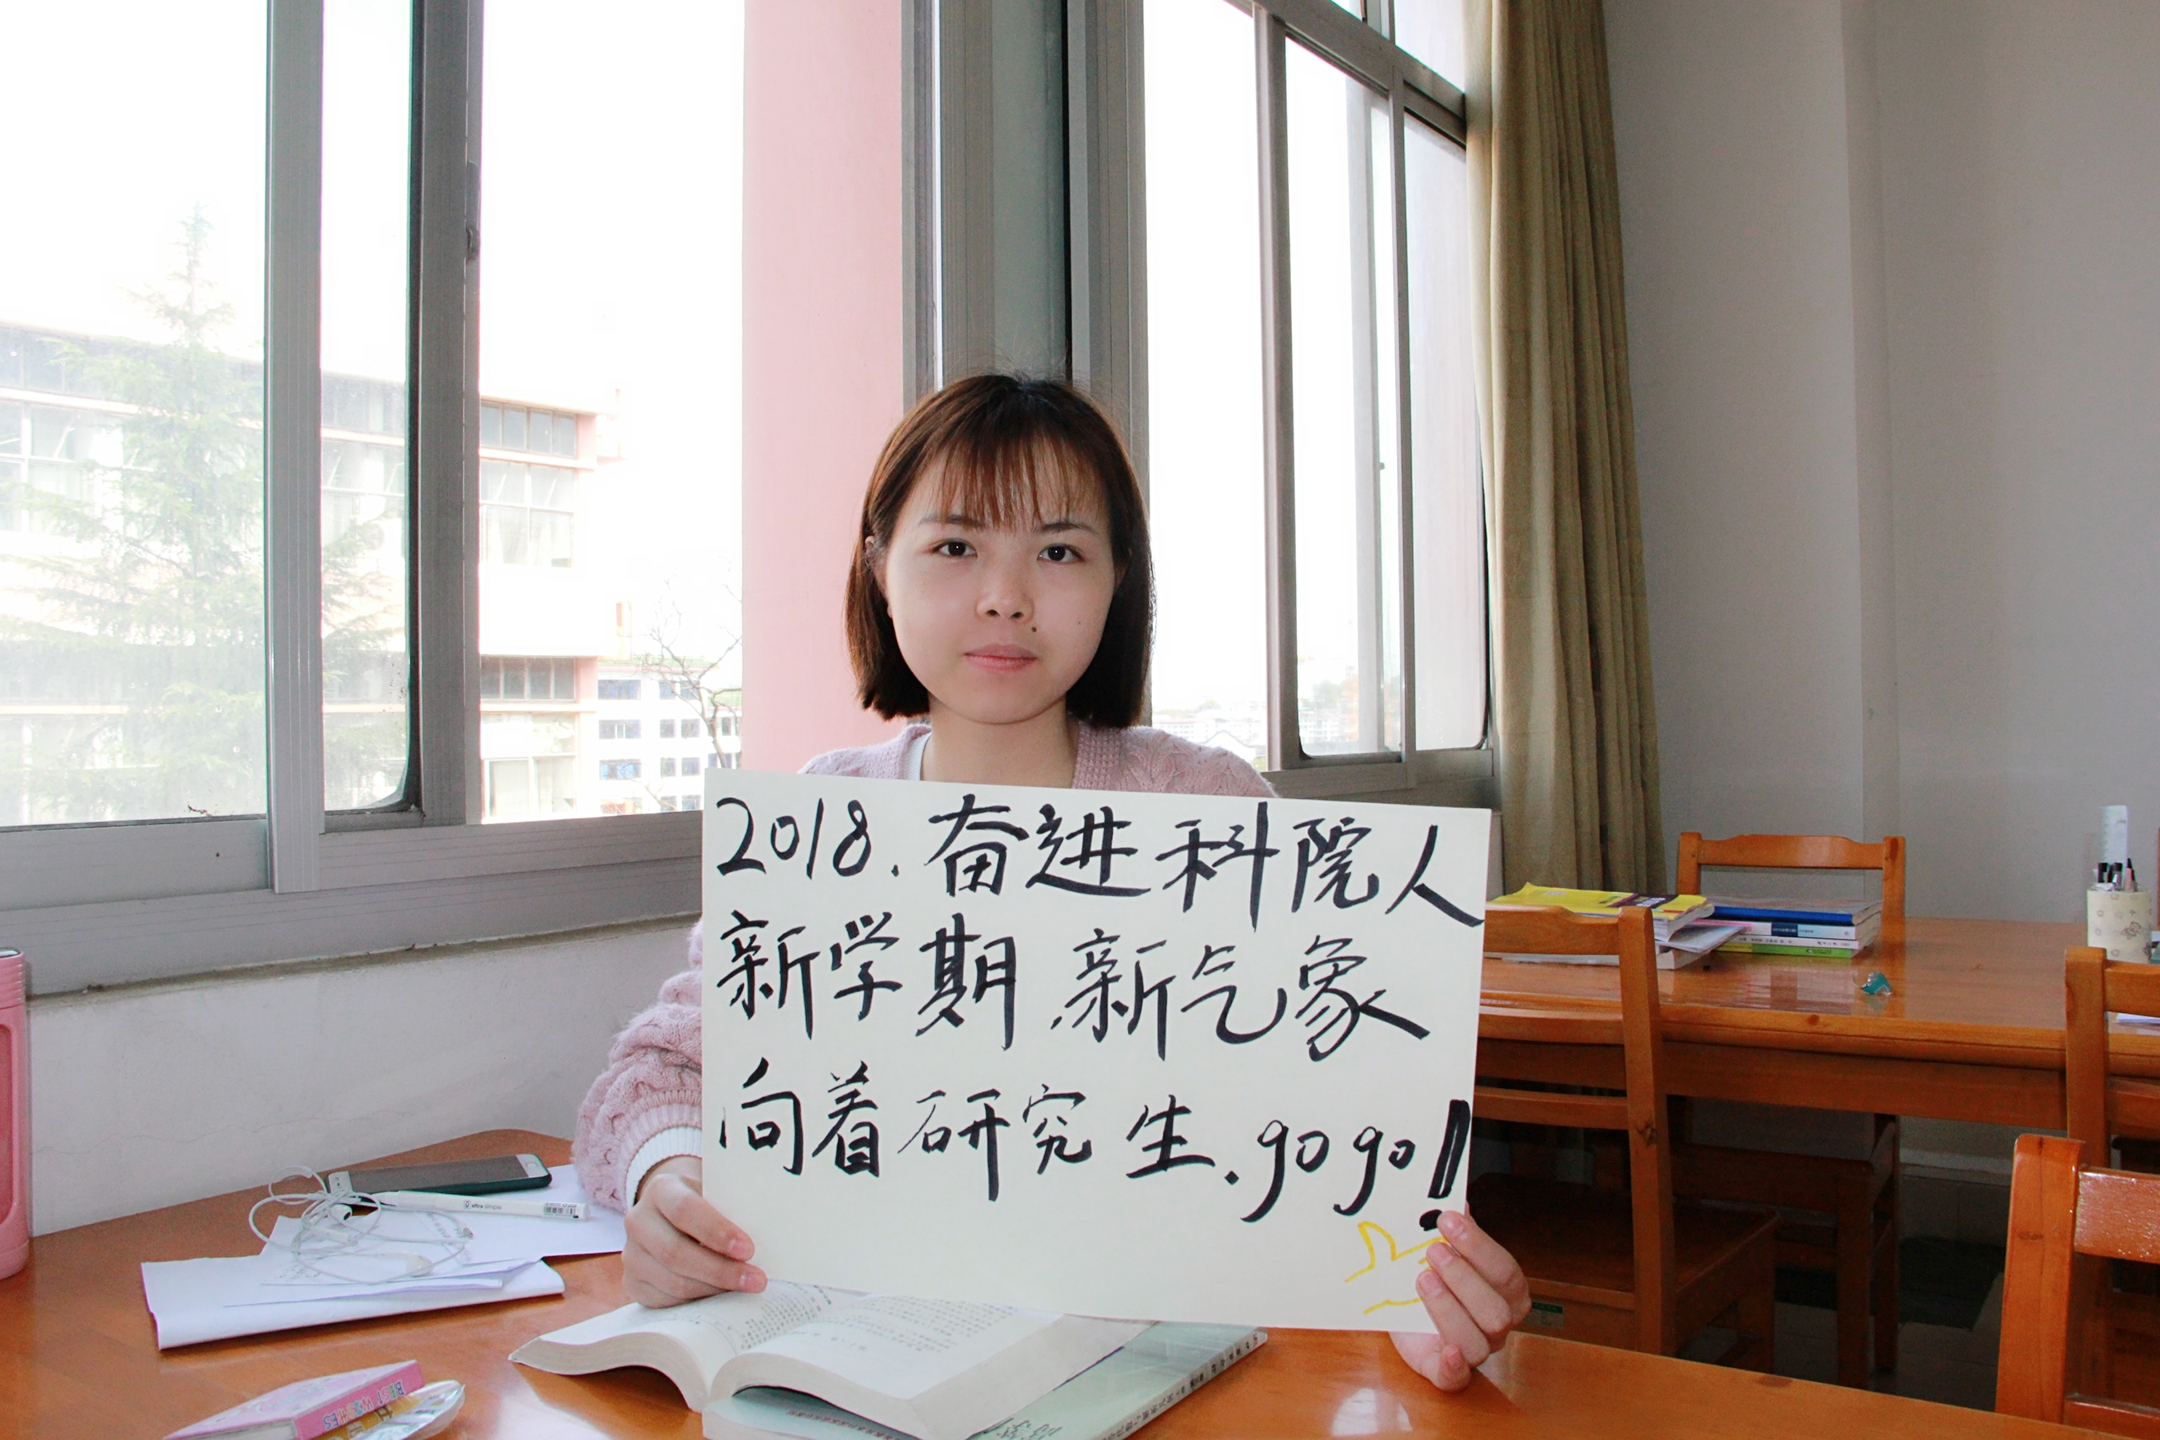 2018.奋进科院人
新学期,新气象
向着研究生.gogo!
BEST WISHES